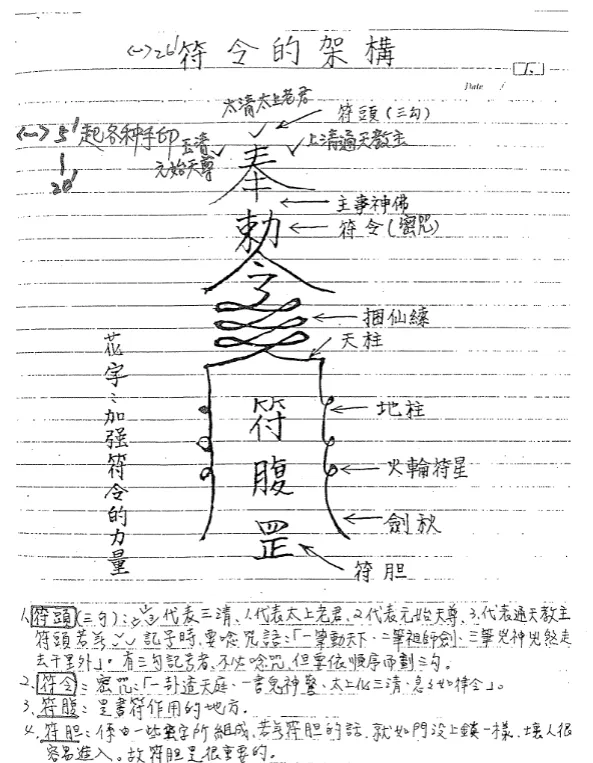 符令的架構
15.
Date
太清太上老君
符頭(三勾)
起各种手印
玉清
元始天尊
上清通天教主
奉
主事神佛
勅
符令(密咒)
令
捆仙繩
天柱
花字:加强符令的力量
符腹罡
地柱
火輪符星
劍秋
符胆
1.符頭(三勾):代表三清、1.代表太上老君、2.代表元始天尊、3.代表通天教主
符頭若為 記子時,要唸咒語:「一筆動天下、二筆祖師劍、三筆兇神兇煞走
去千里外」。有三勾記者,不必唸咒,但要依順序而劃三勾。
2.符令:密咒:「一卦道天庭、一書鬼神驚、太上化三清、急急如律令」。
3.符腹:是書符作用的地方。
4.符胆:係由一些密字所組成,若符胆的話,就如門没上鎖一樣,壞人很
容易進入。故符胆是很重要的。